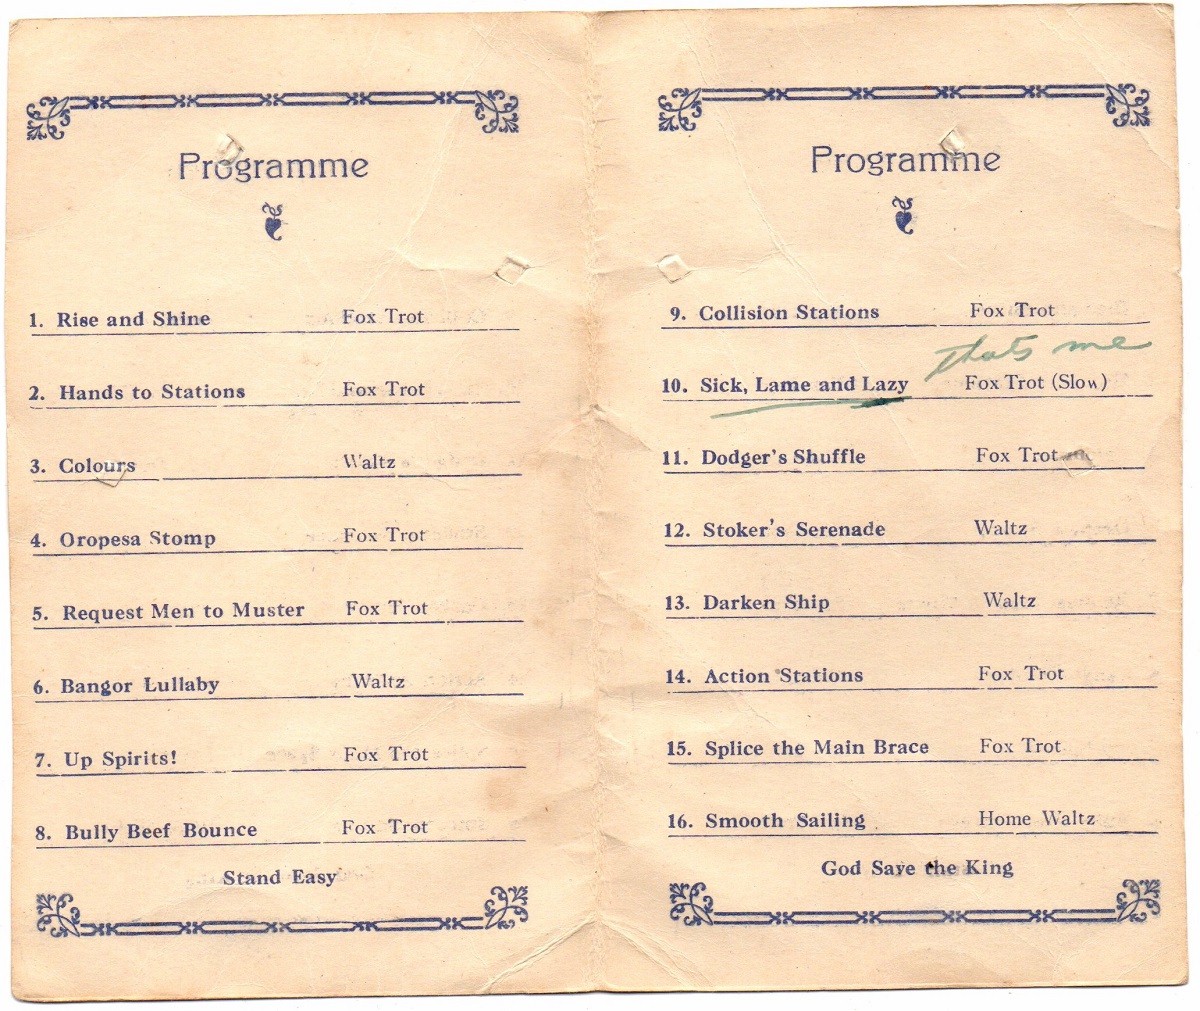 Programme
1. Rise and Shine Fox Trot
2. Hands to Stations Fox Trot
3. Colours Waltz
4. Oropesa Stomp Fox Trot
5. Request Men to Muster Fox Trot
6. Bangor Lullaby Waltz
7. Up Spirits! Fox Trot
8. Bully Beef Bounce Fox Trot
Stand Easy
Programme
9. Collision Stations Fox Trot
thats me
10. Sick, Lame and Lazy Fox Trot (Slow)
11. Dodger's Shuffle Fox Trot
12. Stoker's Serenade Waltz
13. Darken Ship Waltz
14. Action Stations Fox Trot
15. Splice the Main Brace Fox Trot
16. Smooth Sailing Home Waltz
God Save the King